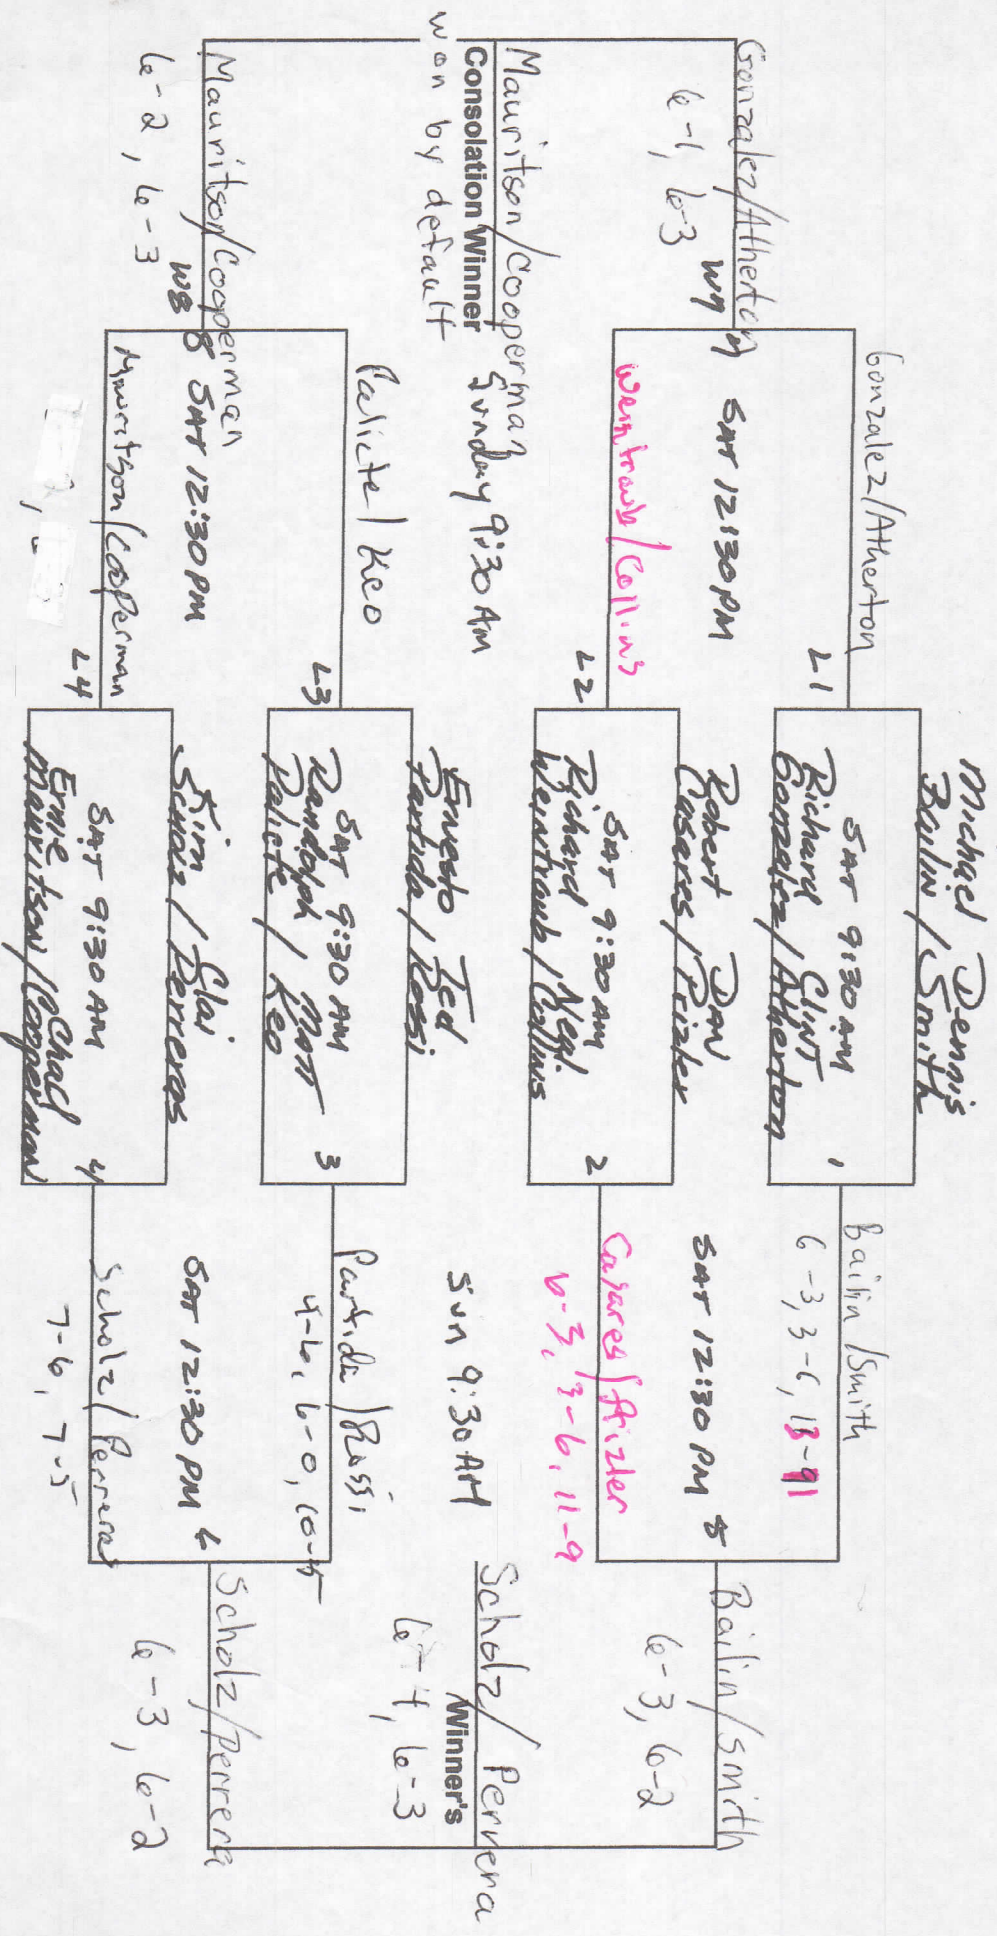 Michael Dennis
Bailin / Smith
SAT 9:30 AM
Richard Clint
Gonzalez / Atherton
1
Robert Dan
Casares / Frizler
SAT 9:30 AM
Richard Neal
Weintraub / Collins
2
Ernesto Ted
Partida / Rossi
SAT 9:30 AM
Randolph Matt
Palicte / Keo
3
Kim Elai
Scholz / Perreras
SAT 9:30 AM
Ernie Chad
Mauritson / Cooperman
4
Bailin / Smith
6-3, 3-6,
SAT 12:30 PM 5
Casares / Frizler
6-3, 3-6, 11-9
Sun 9:30 AM
Partida / Rossi
4-6, 6-0,
SAT 12:30 PM 6
Scholz / Perreras
7-6, 7-5
Bailin / Smith
6-3, 6-2
Scholz / Perrera
Winner's
6-4, 6-3
Scholz / Perrera
6-3, 6-2
Gonzalez / Atherton
L1
SAT 12:30 PM
Weintraub / Collins
L2
Sunday 9:30 AM
Palicte / Keo
L3
8 SAT 12:30 PM
Mauritson / Cooperman
L4
Gonzalez / Atherton
6-1, 6-3
Mauritson / Cooperman
Consolation Winner
won by default
Mauritson / Cooperman
W8
6-2, 6-3